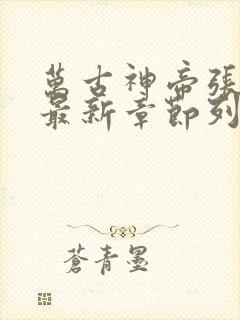 萬古神帝張
最新章節列
蒼青墨